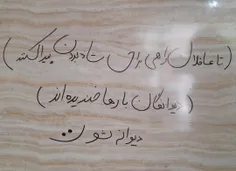 (تا عاقلان راهی برای شاد بودن پیدا کنند)
(دیوانگان بارها خندیده اند)
دیوانه شون